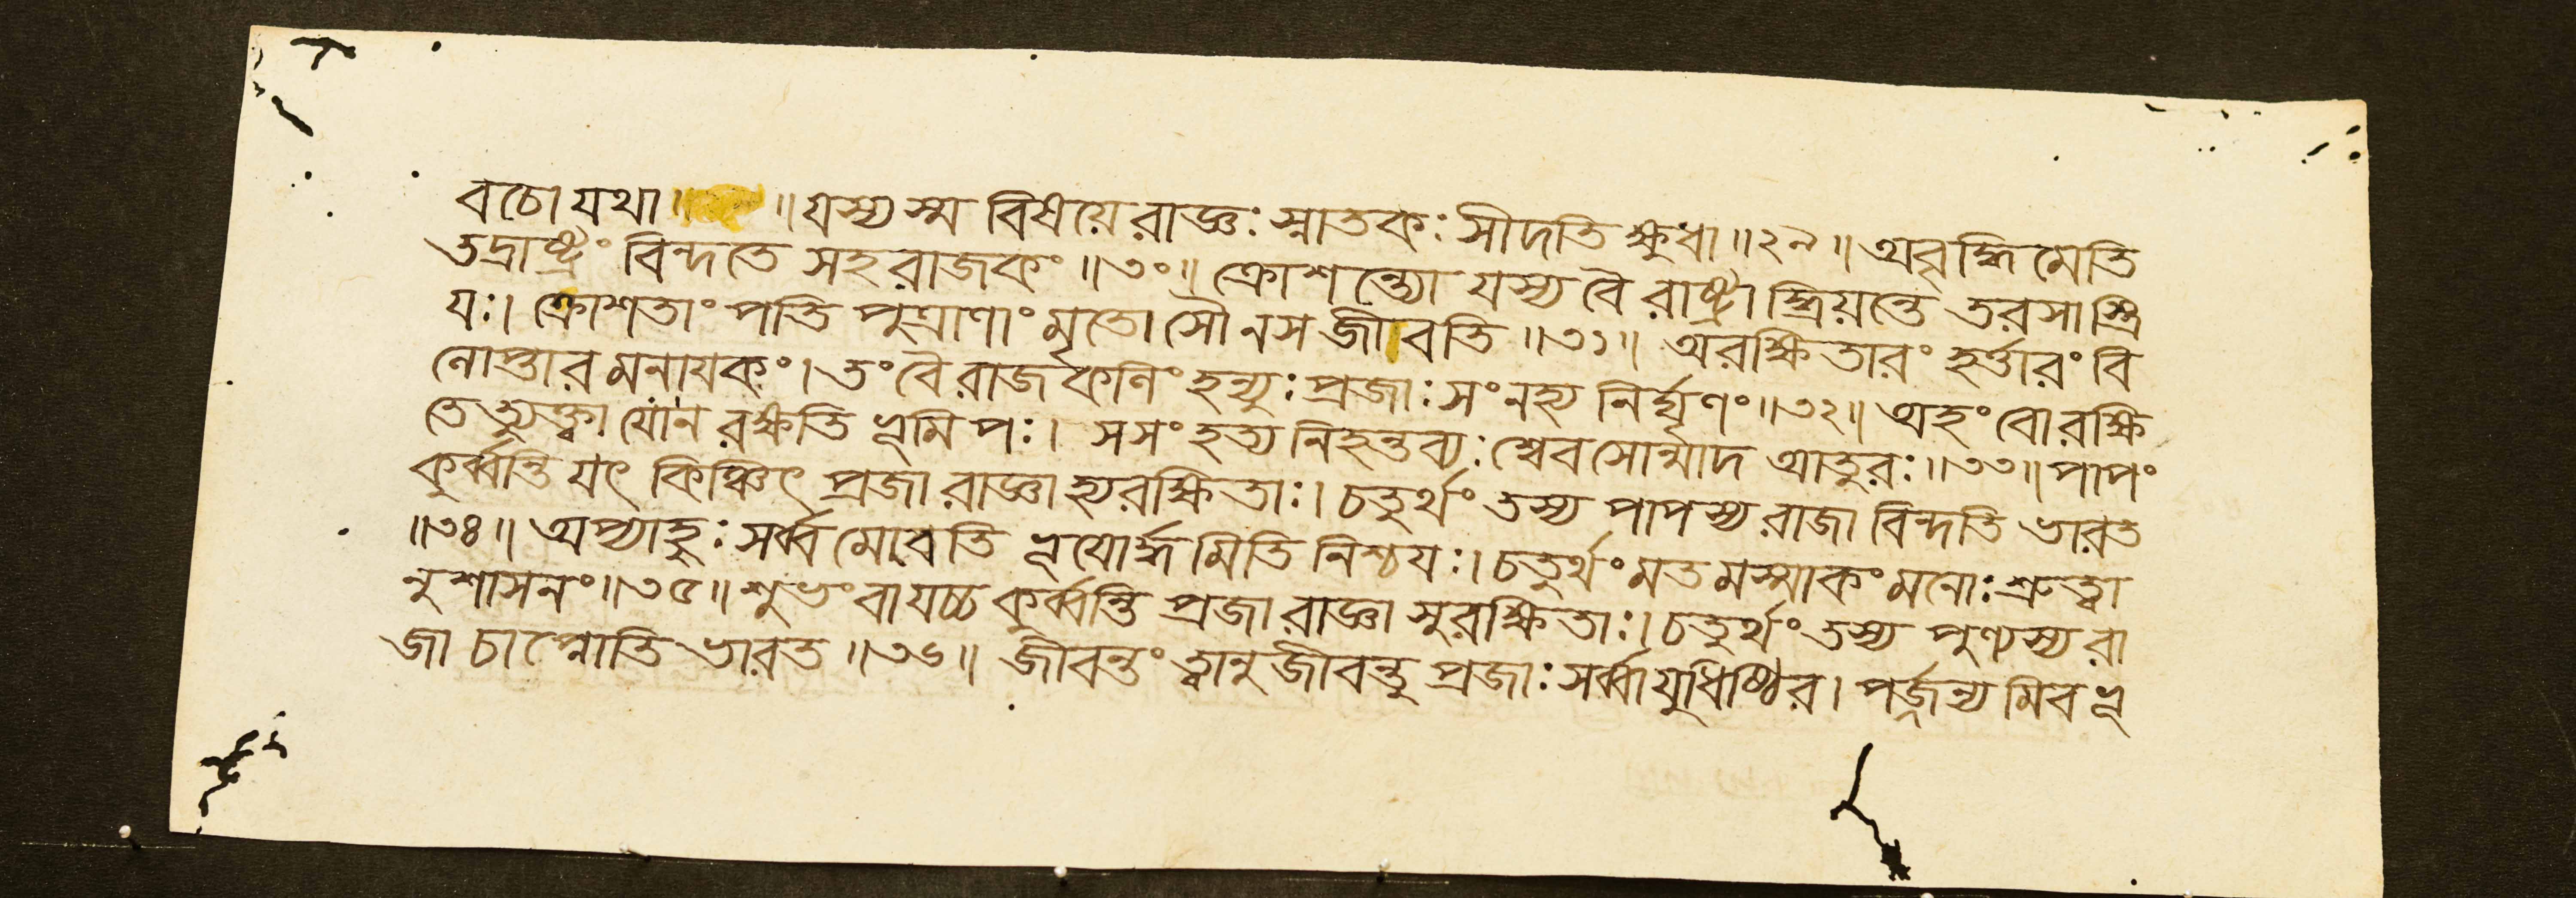 বচো যথা॥ ॥যস্য স্ম বিষয়ে রাজ্ঞঃ স্নাতকঃ সীদতি ক্ষুধা॥২৯॥অবৃদ্ধিমেতি
তদ্রাষ্ট্রং বিন্দতে সহরাজকং॥৩০॥ ক্রোশন্ত্যো যস্য বৈ রাষ্ট্রা স্ত্রিয়ন্তে তরসা স্ত্রি
যঃ। ক্রোশতাং পতি পুত্রাণাং মৃতো সৌ ন স জীবতি॥৩১॥ অরক্ষিতারং হর্ত্তারং বি
লোপ্তারমনায়কং।তং বৈ রাজকলিং হন্যুঃ প্রজাঃ সংনহ্য নির্ঘৃণং॥৩২॥অহং বো রক্ষি
তেত্যুক্ত্বা যো ন রক্ষতি ভূমিপঃ। স সংহত্য নিহন্তব্যঃ শ্বেব সোন্মাদ আতুরঃ॥৩৩॥পাপং
কুর্ব্বন্তি যৎ কিঞ্চিৎ প্রজা রাজ্ঞা হ্যরক্ষিতাঃ। চতুর্থং তস্য পাপস্য রাজা বিন্দতি ভারত
॥৩৪॥ অপ্যাহুঃ সর্ব্বমেবেতি ভূযোর্দ্ধমিতি নিশ্চযঃ। চতুর্থং মতমস্মাকং মনোঃ শ্রুত্বা
নুশাসনং॥৩৫॥শুভং বা যচ্চ কুর্ব্বন্তি প্রজা রাজ্ঞা সুরক্ষিতাঃ। চতুর্থং তস্য পুণ্যস্য রা
জা চাপ্নোতি ভারত॥৩৬॥ জীবন্তং ত্বানুজীবন্তু প্রজাঃ সর্ব্বা যুধিষ্ঠির। পর্জ্জন্যমিব ভূ